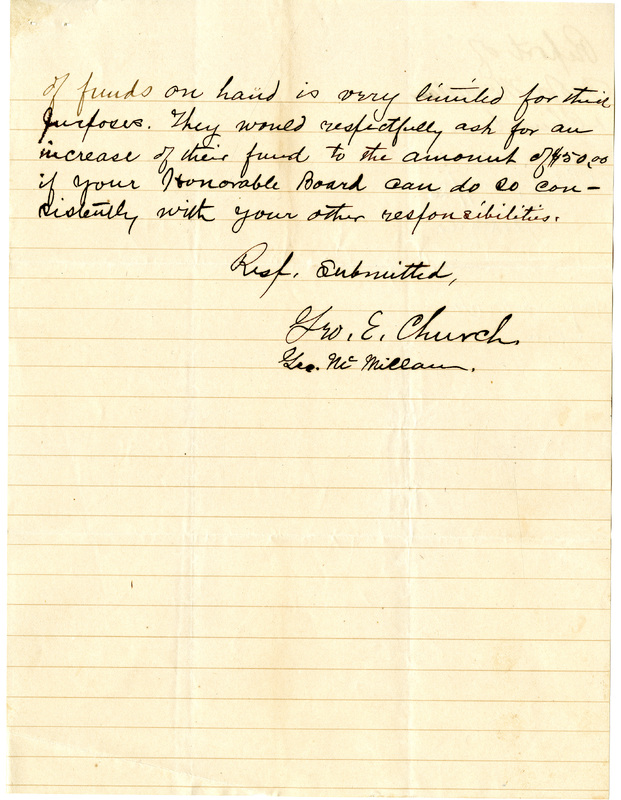 of funds on hand is very limited for their
purposes. They would respectfully ask for an
increase of their fund to the amount of $50.00
if your Honorable Board can do so con-
sistently with your other responsibilities.
Resp. Submitted,
Geo. E. Church.
Geo. Mc Millan.